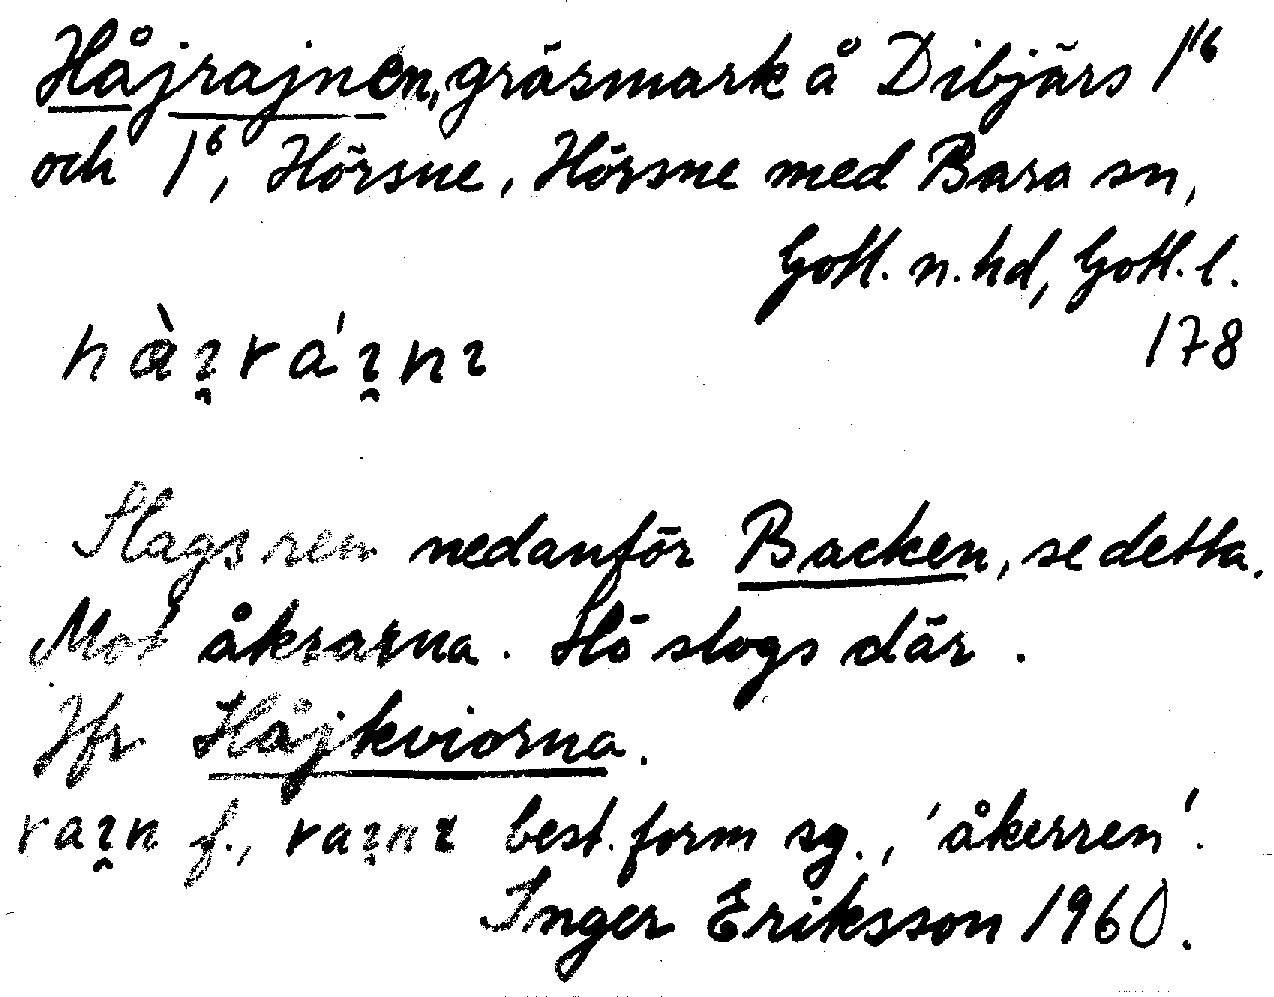 Håjrajnen, gräsmark å Dibjärs 1¹⁶
och 1⁶, Hörsne, Hörsne med Bara sn,
Gotl. n. hd, Gotl. l.
178
Slagsren nedanför Backen, se detta.
Mot åkrarna. Hö slogs där.
Jfr Håjkviorna.
f., best. form sg., 'åkerren'.
Inger Eriksson 1960.